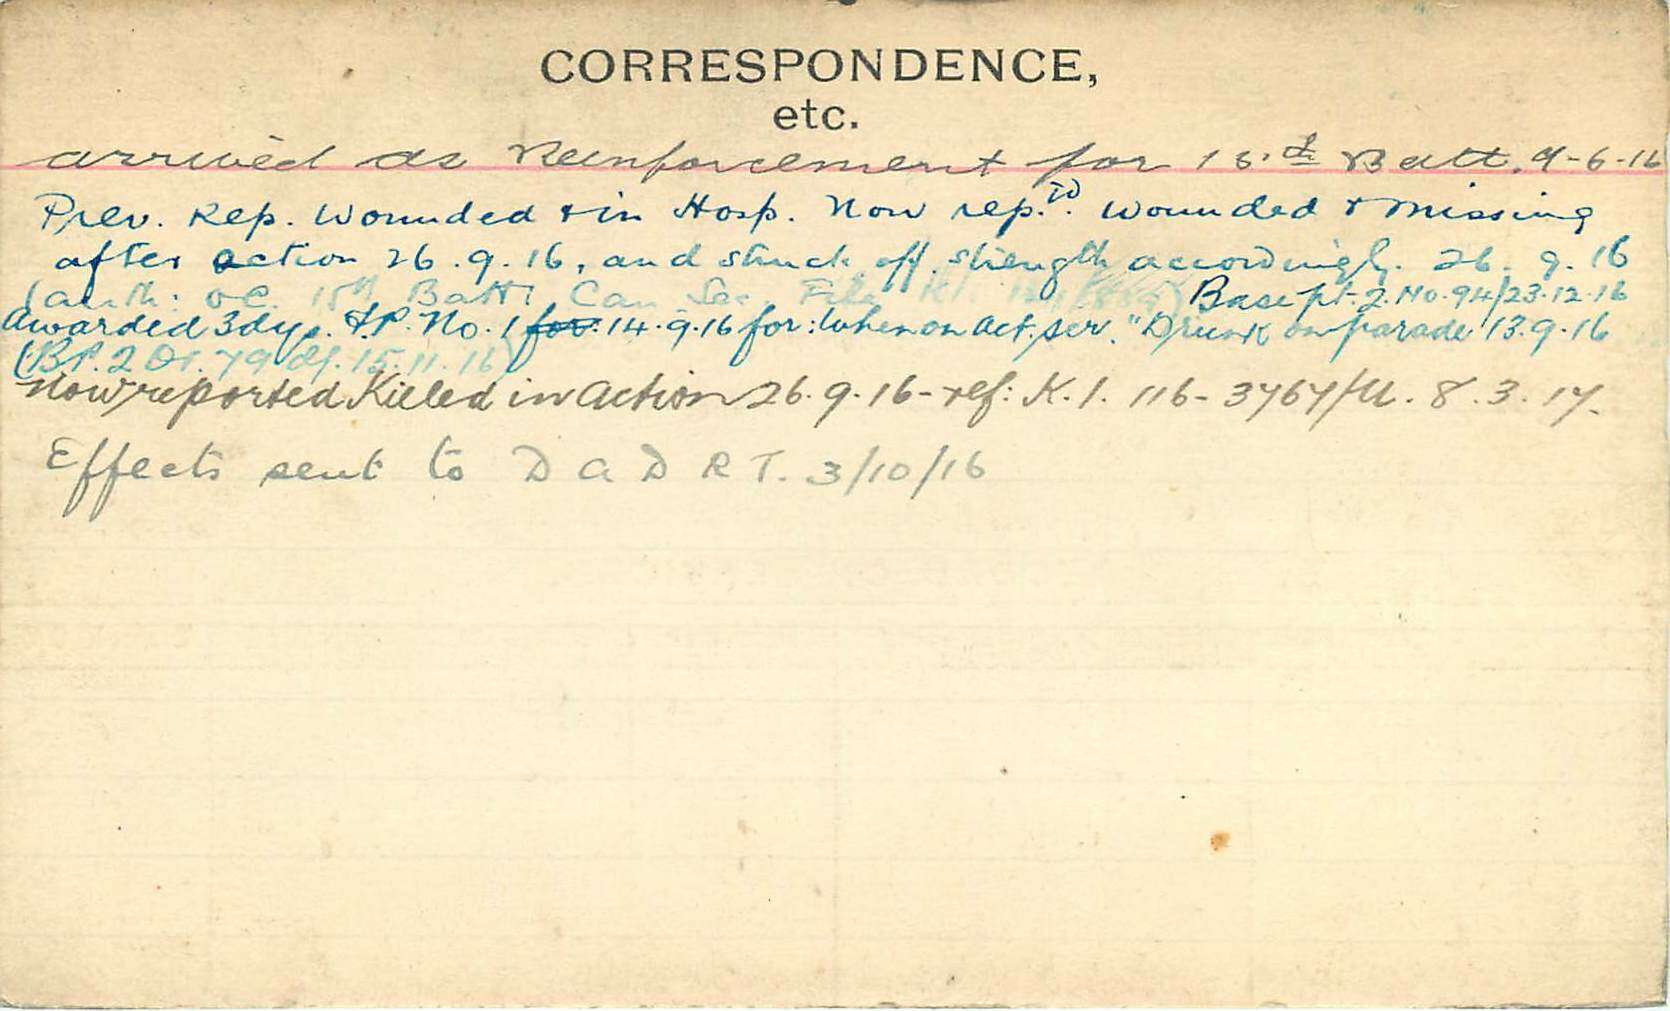 CORRESPONDENCE,
etc.
arrived as Reinforcement for 15.th Batt. 9-6-16
Prev. Rep. Wounded & in Hosp. Now rep.TD. Wounded & Missing
after action 26.9.16, and struck off strength accordingly. 26.9.16
(auth: OC. 15th Battn Can Sec. File Base pt. 2. No. 94/23.12.16
Awarded 3dys. F.P. No. 1 for: 14.9.16 for: When on Act. ser. "Drunk on parade" 13.9.16
(BP. 2 Or. 79 df. 15.11.16)
Now reported Killed in Action 26.9.16 - ref: K.1. 116- 3767/U. 8.3.17.
Effects sent to D A D R T. 3/10/16